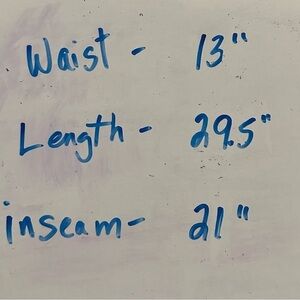 Waist - 13"
Length - 29.5"
inseam - 21"